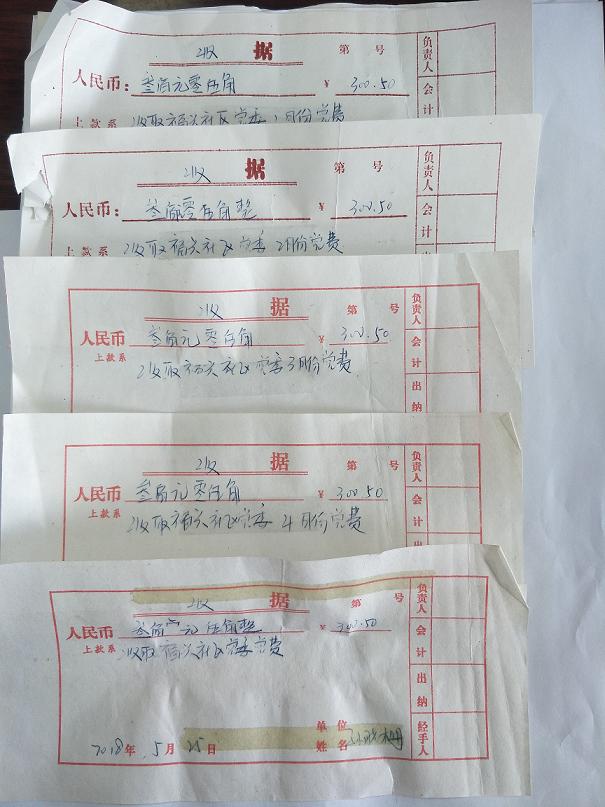 收 据 第 号
人民币： 叁佰元零伍角 ¥ 300.50
上款系 收取福头社区党委1月份党费
负责人 会计
收 据 第 号
人民币： 叁佰零伍角整 ¥ 300.50
上款系 收取福头社区党委2月份党费
负责人 会计 出
收 据 第 号
人民币 叁佰元零伍角 ¥ 300.50
上款系 收取福头社区党委3月份党费
负责人 会计 出纳
收 据 第 号
人民币 叁佰元零伍角 ¥ 300.50
上款系 收取福头社区党委4月份党费
负责人 会计 出
收 据 第 号
人民币 叁佰元伍角整 ¥ 300.50
上款系 收取福头社区党委党费
负责人 会计 出纳 经手人
单位
2018年 5月 25日 姓名